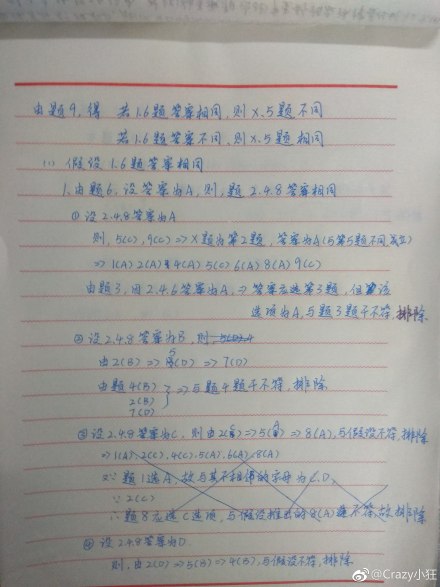 由题9,得 若1.6题答案相同,则X.5题不同
若1.6题答案不同,则X.5题相同
(1) 假设1.6题答案相同
1.由题6,设答案为A,则,题2.4.8答案相同
① 设2.4.8答案为A
则,5(C),9(C)=>X题为第2题,答案为A(与第5题不同,成立)
=>1(A)2(A)4(A)5(C)6(A)8(A)9(C)
由题3,因2.4.6答案为A,=>答案应选第3题,但该
选项为A,与题3题干不符,排除
② 设2.4.8答案为B,则
由2(B)=>5(D)=>7(D)
由题4(B)
2(B)
7(D)
}=>与题4题干不符,排除
③ 设2.4.8答案为C,则由2(C)=>5(A)=>8(A),与假设不符,排除
=>1(A).2(C).4(C).5(A).6(A).8(A)
∵题1选A,故与其不相邻的字母为C.D
∵2(C)
∴题8应选C选项,与假设推出的8(A)不符,故排除
④ 设2.4.8答案为D
则,由2(D)=>5(B)=>4(B),与假设不符,排除
@Crazy小狂